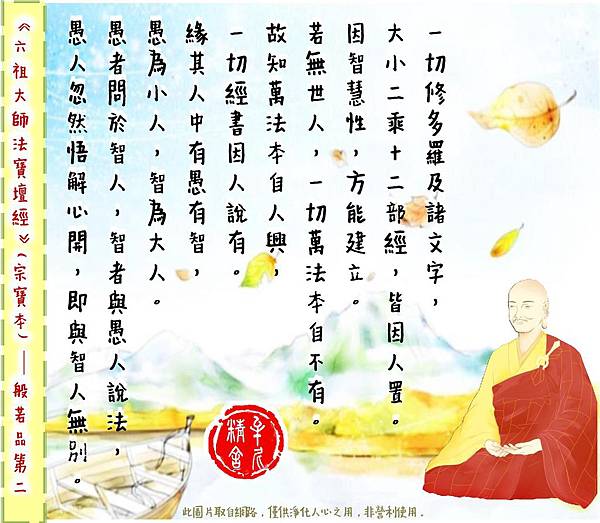 一切修多羅及諸文字，
大小二乘十二部經，皆因人置。
因智慧性，方能建立。
若無世人，一切萬法本自不有。
故知萬法本自人興，
一切經書因人說有。
緣其人中有愚有智，
愚為小人，智為大人。
愚者問於智人，智者與愚人說法，
愚人忽然悟解心開，即與智人無別。
《六祖大師法寶壇經》（宗寶本）——般若品第二
精舍
此圖片取自網路，僅供淨化人心之用，非營利使用。